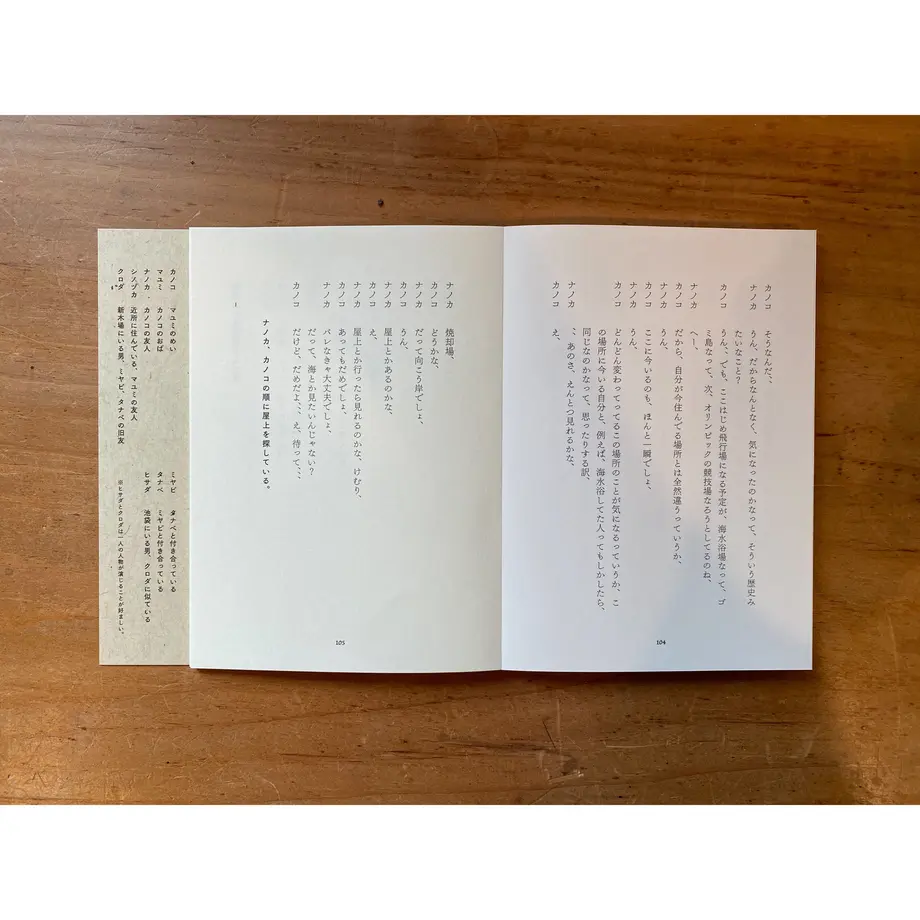 カノコ　そうなんだ、、
ナノカ　うん、だからなんとなく、気になったのかなって、そういう歴史み
たいなこと？
カノコ　うん、、でも、ここはじめ飛行場になる予定が、海水浴場なって、ゴ
ミ島なって、次、オリンピックの競技場なろうとしてるのね、
ナノカ　へー、
カノコ　だから、自分が今住んでる場所とは全然違うっていうか、
ナノカ　うん、
カノコ　ここに今いるのも、ほんと一瞬でしょ、
ナノカ　うん、
カノコ　どんどん変わってってるこの場所のことが気になるっていうか、こ
の場所に今いる自分と、例えば、海水浴してた人ってもしかしたら、
同じなのかなって、思ったりする訳、
ナノカ　、、あのさ、えんとつ見れるかな、
カノコ　え、
104
ナノカ　焼却場、
カノコ　どうかな、
ナノカ　だって向こう岸でしょ、
カノコ　うん、
ナノカ　屋上とかあるのかな、
カノコ　え、
ナノカ　屋上とか行ったら見れるのかな、けむり、
カノコ　あってもだめでしょ、
ナノカ　バレなきゃ大丈夫でしょ、
だって、海とか見たいんじゃない？
カノコ　だけど、だめだよ、、、え、待って、、、
ナノカ、カノコの順に屋上を探している。
105
カノコ　マユミのめい
マユミ　カノコのおば
ナノカ　カノコの友人
シノヅカ　近所に住んでいる、マユミの友人
クロダ　新木場にいる男、ミヤビ、タナベの旧友
ミヤビ　タナベと付き合っている
タナベ　ミヤビと付き合っている
ヒサダ　池袋にいる男、クロダに似ている
※ヒサダとクロダは一人の人物が演じることが好ましい。